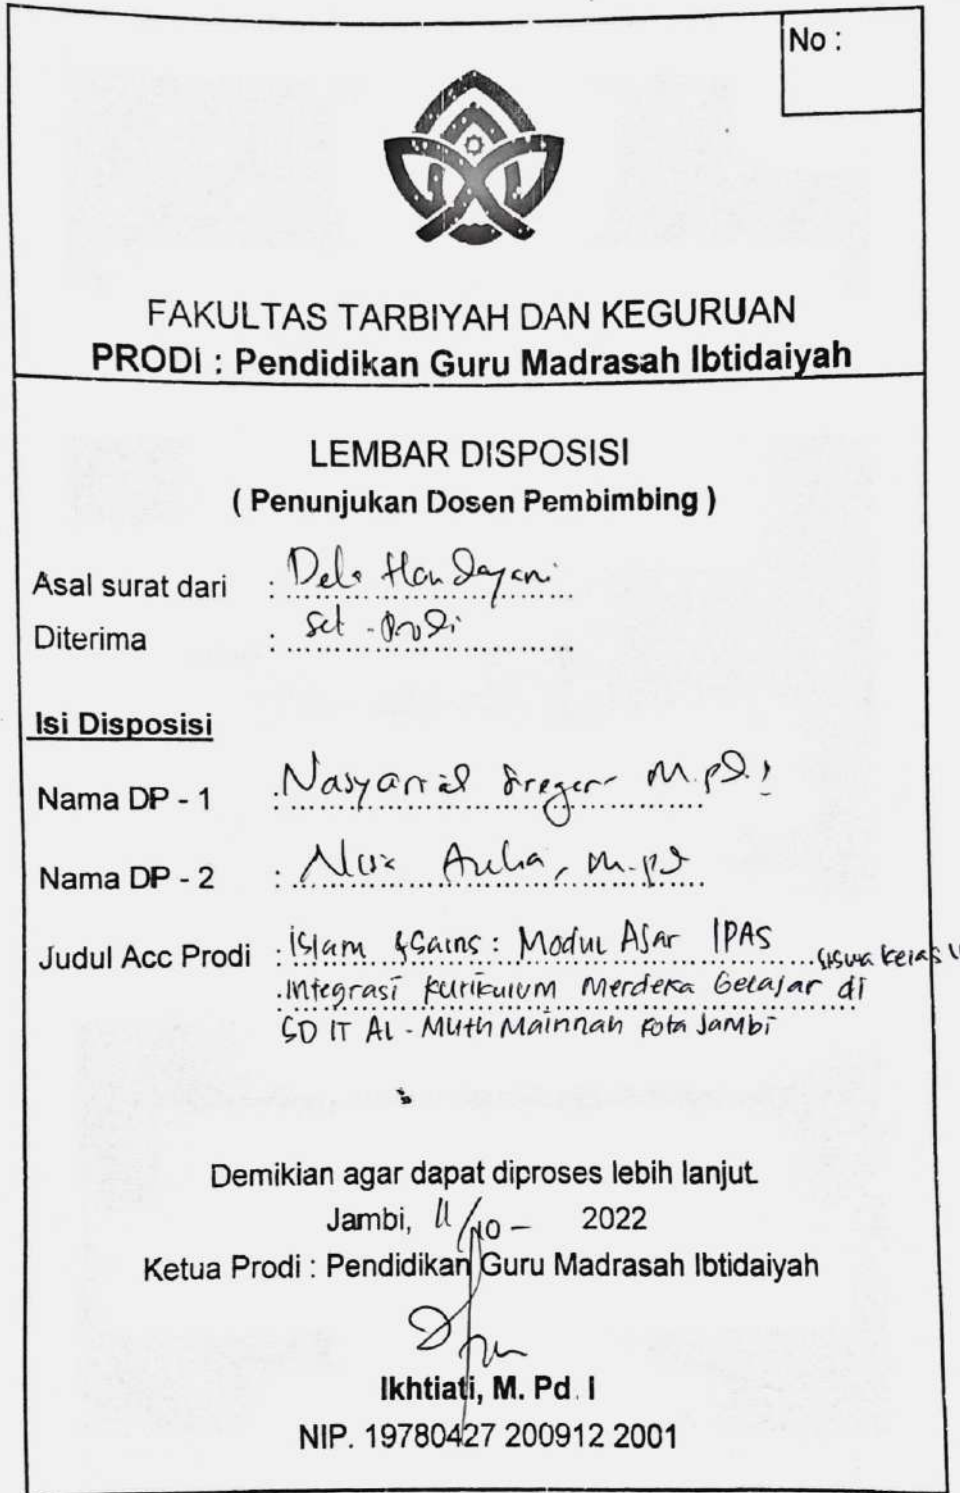 No :
FAKULTAS TARBIYAH DAN KEGURUAN
PRODI : Pendidikan Guru Madrasah Ibtidaiyah
LEMBAR DISPOSISI
( Penunjukan Dosen Pembimbing )
Asal surat dari : Dela Handayani
Diterima : Set-Prodi
Isi Disposisi
Nama DP - 1 : Nasyariah Siregar M.Pd.I
Nama DP - 2 : Aulia, M.Pd
Judul Acc Prodi : Islam & Sains : Modul Ajar IPAS siswa kelas
Integrasi kurikulum Merdeka Belajar di
SD IT AL - Muth Mainnah Kota Jambi
Demikian agar dapat diproses lebih lanjut.
Jambi, 11/10 - 2022
Ketua Prodi : Pendidikan Guru Madrasah Ibtidaiyah
Ikhtiati, M. Pd. I
NIP. 19780427 200912 2001